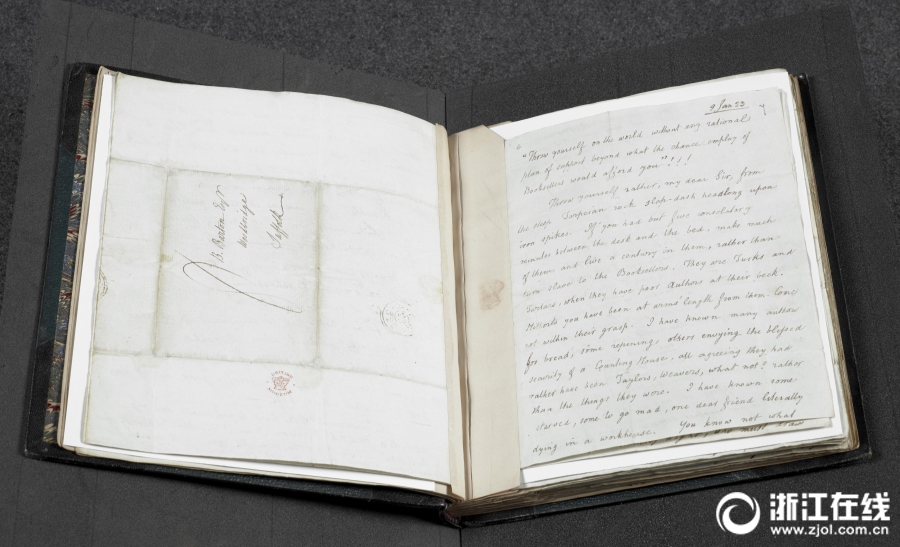 B. Barton Esqr
Woodbridge
Suffolk
BRITISH
MUSEUM
9 Jan 23
"Throw yourself on the world without any rational
plan of support beyond what the chance employ of
Booksellers would afford you"!!!
Throw yourself rather, my dear Sir, from
the steep Tarpeian rock slap-dash headlong upon
iron spikes. If you had but five consolatory
minutes between the desk and the bed, make much
of them and live a century in them, rather than
turn slave to the Booksellers. They are Turks and
Tartars, when they have poor Authors at their beck.
Hitherto you have been at arms' length from them. Come
not within their grasp. I have known many authors
for bread, some repining, others envying the blessed
security of a Counting House, all agreeing they had
rather have been Taylors, Weavers, what not? rather
than the things they were. I have known some
starved, some to go mad, one dear friend literally
dying in a workhouse. You know not what
浙江在线
www.zjol.com.cn